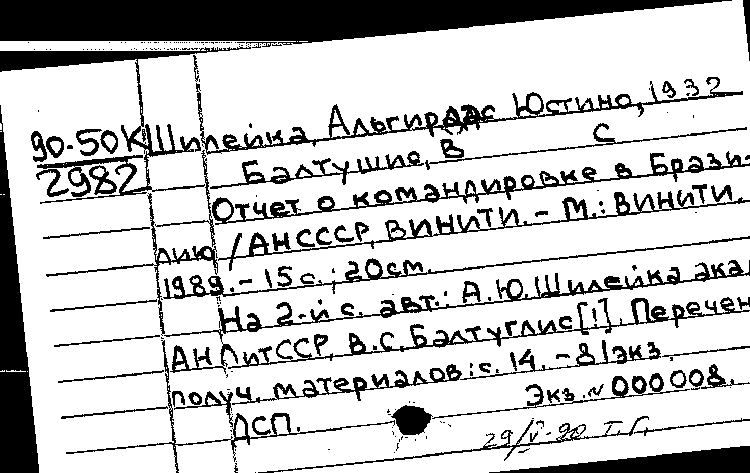 90-50К Шилейка, Альгирдас Юстино, 1932
2982 Балтушис, В С
Отчет о командировке в Брази-
лию / АНСССР, ВИНИТИ. - М.: ВИНИТИ.
1989. - 15 с.; 20см.
На 2-й с. авт.: А.Ю.Шилейка акад.
АН ЛитССР, В.С.Балтуглис[!]. Перечен
получ. материалов: с. 14. - 81экз.
Экз. № 000008.
ДСП.
29/V-90 Т.Г.